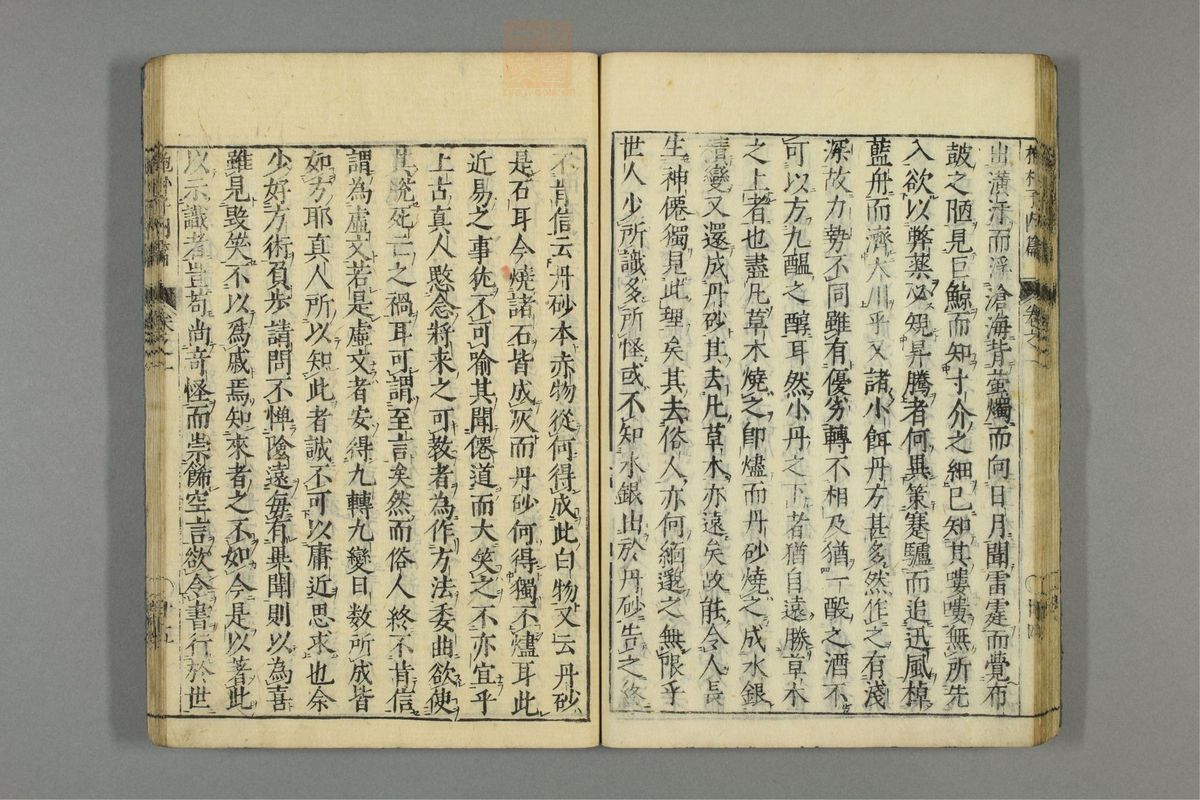 出潢汙而浮滄海背螢燭而向日月聞雷霆而覺布
皷之陋見巨鯨而知寸介之細已知其嘍嘍無所先
入欲以弊藥必規昇騰者何異策蹇驢而追迅風棹
藍舟而濟大川乎又諸小餌丹方甚多然作之有淺
深故力勢不同雖有優劣轉不相及猶一酘之酒不
可以方九醞之醇耳然小丹之下者猶自遠勝草木
之上者也盡凡草木燒之即燼而丹砂燒之成水銀
積變又還成丹砂其去凡草木亦遠矣故能令人長
生神僊獨見此理矣其去俗人亦何緬邈之無限乎
世人少所識多所怪或不知水銀出於丹砂告之終
不肯信云丹砂本赤物從何得成此白物又云丹砂
是石耳今燒諸石皆成灰而丹砂何得獨不燼耳此
近易之事猶不可喻其聞僊道而大笑之不亦宜乎
上古真人愍念將来之可教者為作方法委曲欲使
其脱死亡之禍耳可謂至言矣然而俗人終不肯信
謂為虛文若是虛文者安得九轉九變日数所成皆
如方耶真人所以知此者誠不可以庸近思求也余
少好方術負步請問不憚險遠每有異聞則以為喜
雖見毀笑不以為戚焉知來者之不如今是以著此
以示識者豈苟尚竒怪而崇飾空言欲令書行於世